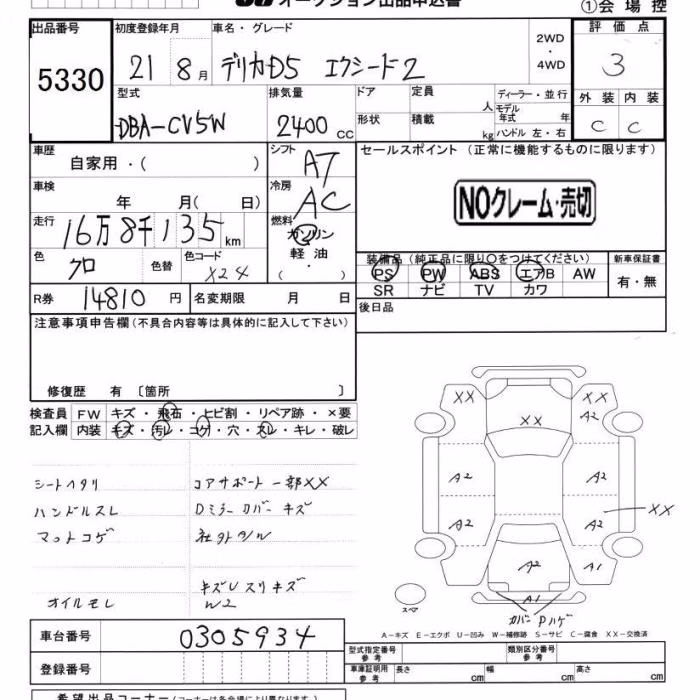 オークション出品申込書
①会場控
出品番号 初度登録年月 車名・グレード 評価点
5330 21 8月 デリカD5 エクシード2 2WD・4WD 3
型式 排気量 ドア 定員 人 ディーラー・並行 外装 内装
DBA-CV5W 2400 CC 形状 積載 kg モデル年式 年 C C
ハンドル 左・右
車歴 自家用・( ) シフト AT セールスポイント (正常に機能するものに限ります)
車検 年 月( 日) 冷房 AC NOクレーム・売切
走行 16万8千135km 燃料 ガソリン 軽油・( )
装備品 (純正品に限り○をつけてください) 新車保証書
色 クロ 色替 色コード X24 PS PW ABS エアB AW 有・無
SR ナビ TV カワ
R券 14810円 名変期限 月 日 後日品
注意事項申告欄(不具合内容等は具体的に記入して下さい)
修復歴 有 〔箇所 〕
検査員 FW キズ・飛石・ヒビ割・リペア跡・×要
記入欄 内装 キズ・汚レ・コゲ・穴・スレ・キレ・破レ
XX XX
XX A2
シートヘタリ コアサポート一部XX A2 A2
ハンドルスレ Dミラーカバーキズ XX
マットコゲ 社外マフ A2 A2
A2 A1
キズUスリキズ
オイルモレ W2 スペア A1
カバーPハゲ
A-キズ E-エクボ U-凹み W-補修跡 S-サビ C-腐食 XX-交換済
車台番号 0305934 型式指定番号 参考 類別区分番号 参考
登録番号 車庫証明用 参考 長さ cm 幅 cm 高さ cm
希望出品コーナー(コーナーは各会場により異なります)